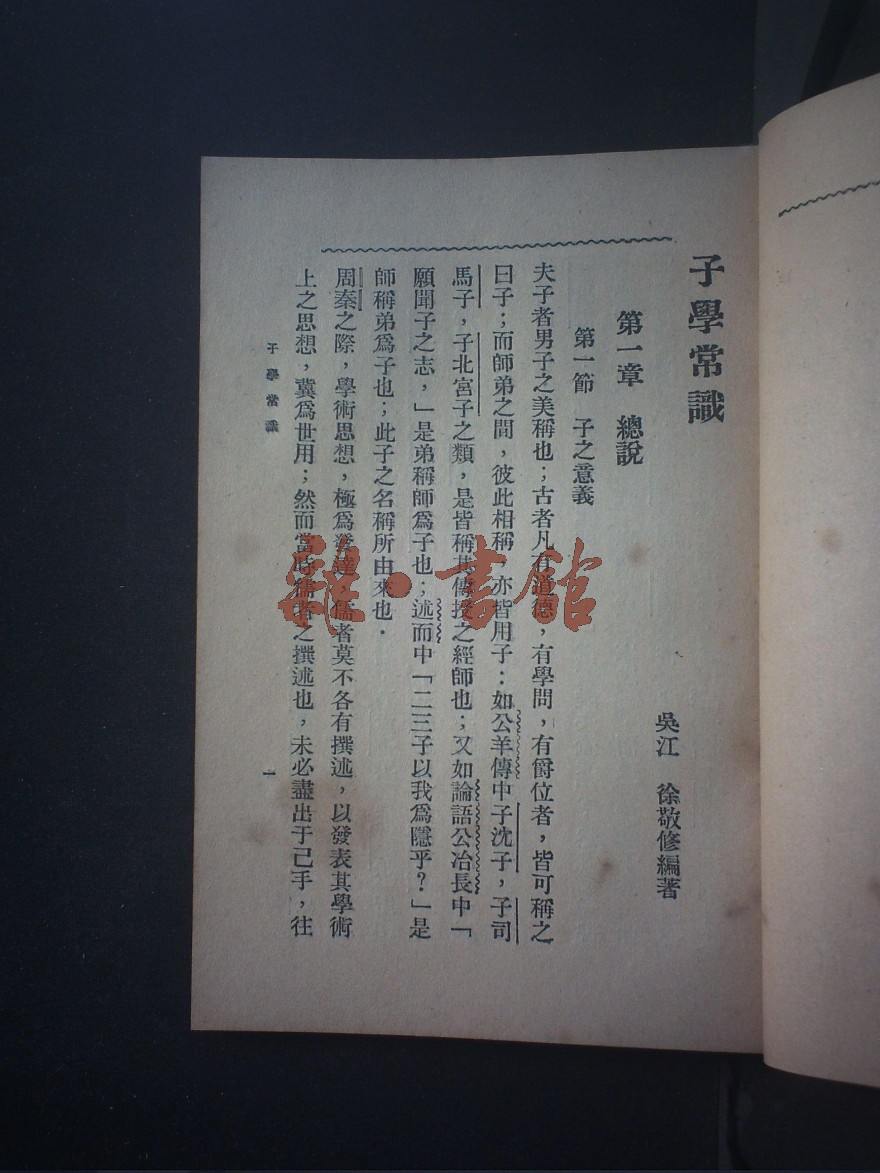 子學常識
吳江　徐敬修編著
第一章　總說
第一節　子之意義
夫子者男子之美稱也；古者凡有道德，有學問，有爵位者，皆可稱之
曰子；而師弟之間，彼此相稱，亦皆用子：如公羊傳中子沈子，子司
馬子，子北宮子之類，是皆稱其傳授之經師也；又如論語公冶長中「
願聞子之志，」是弟稱師爲子也；述而中「二三子以我爲隱乎？」是
師稱弟爲子也；此子之名稱所由來也．
周秦之際，學術思想，極爲發達，儒者莫不各有撰述，以發表其學術
上之思想，冀爲世用；然而當時儒者之撰述也，未必盡出于己手，往
子學常識
一
雜·書館